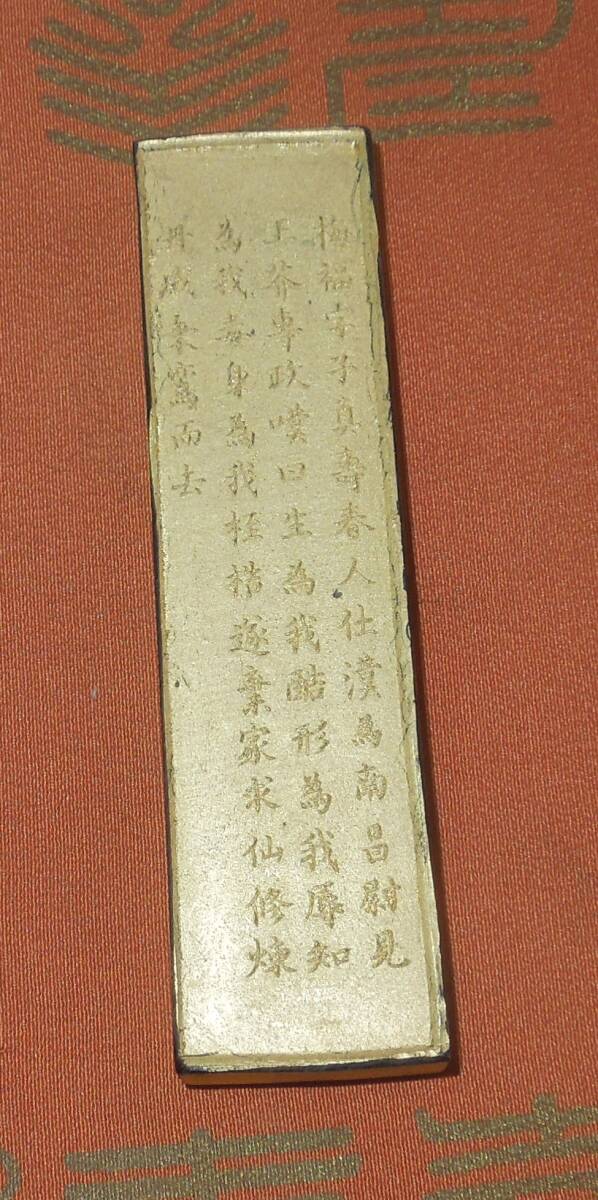 梅福字子真壽春人仕漢為南昌尉見
王莽專政嘆曰生為我酷形為我辱知
為我毒身為我桎梏遂棄家求仙修煉
丹成乘鸞而去